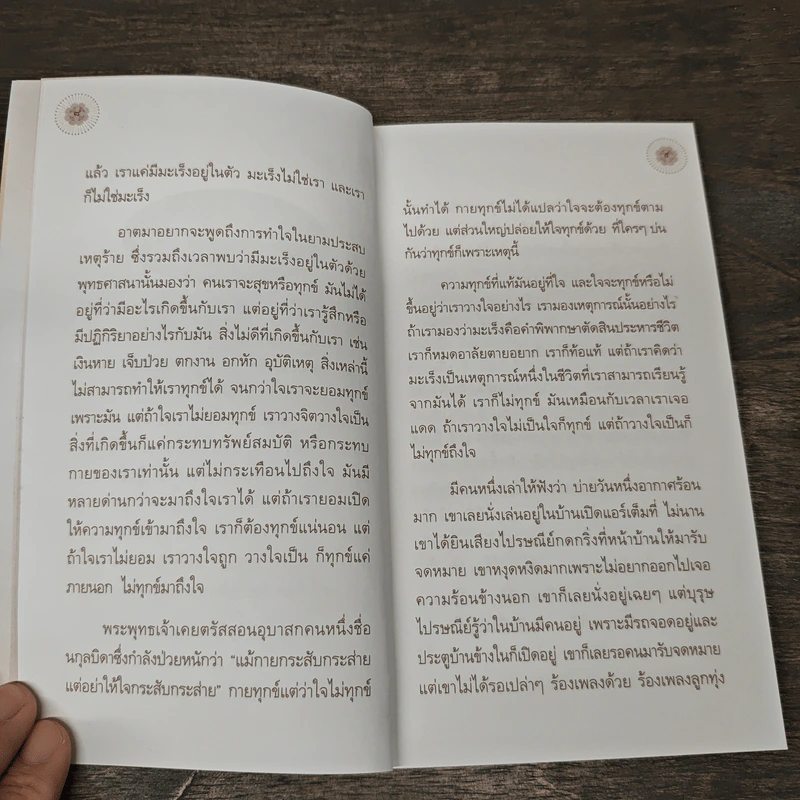 แล้ว เราแค่มีมะเร็งอยู่ในตัว มะเร็งไม่ใช่เรา และเรา
ก็ไม่ใช่มะเร็ง
อาตมาอยากจะพูดถึงการทำใจในยามประสบ
เหตุร้าย ซึ่งรวมถึงเวลาพบว่ามีมะเร็งอยู่ในตัวด้วย
พุทธศาสนานั้นมองว่า คนเราจะสุขหรือทุกข์ มันไม่ได้
อยู่ที่ว่ามีอะไรเกิดขึ้นกับเรา แต่อยู่ที่ว่าเรารู้สึกหรือ
มีปฏิกิริยาอย่างไรกับมัน สิ่งไม่ดีที่เกิดขึ้นกับเรา เช่น
เงินหาย เจ็บป่วย ตกงาน อกหัก อุบัติเหตุ สิ่งเหล่านี้
ไม่สามารถทำให้เราทุกข์ได้ จนกว่าใจเราจะยอมทุกข์
เพราะมัน แต่ถ้าใจเราไม่ยอมทุกข์ เราวางจิตวางใจเป็น
สิ่งที่เกิดขึ้นก็แค่กระทบทรัพย์สมบัติ หรือกระทบ
กายของเราเท่านั้น แต่ไม่กระเทือนไปถึงใจ มันมี
หลายด่านกว่าจะมาถึงใจเราได้ แต่ถ้าเรายอมเปิด
ให้ความทุกข์เข้ามาถึงใจ เราก็ต้องทุกข์แน่นอน แต่
ถ้าใจเราไม่ยอม เราวางใจถูก วางใจเป็น ก็ทุกข์แค่
ภายนอก ไม่ทุกข์มาถึงใจ
พระพุทธเจ้าเคยตรัสสอนอุบาสกคนหนึ่งชื่อ
นกุลบิดาซึ่งกำลังป่วยหนักว่า “แม้กายกระสับกระส่าย
แต่อย่าให้ใจกระสับกระส่าย” กายทุกข์แต่ว่าใจไม่ทุกข์
นั้นทำได้ กายทุกข์ไม่ได้แปลว่าใจจะต้องทุกข์ตาม
ไปด้วย แต่ส่วนใหญ่ปล่อยให้ใจทุกข์ด้วย ที่ใครๆ บ่น
กันว่าทุกข์ก็เพราะเหตุนี้
ความทุกข์ที่แท้มันอยู่ที่ใจ และใจจะทุกข์หรือไม่
ขึ้นอยู่ว่าเราวางใจอย่างไร เรามองเหตุการณ์นั้นอย่างไร
ถ้าเรามองว่ามะเร็งคือคำพิพากษาตัดสินประหารชีวิต
เราก็หมดอาลัยตายอยาก เราก็ท้อแท้ แต่ถ้าเราคิดว่า
มะเร็งเป็นเหตุการณ์หนึ่งในชีวิตที่เราสามารถเรียนรู้
จากมันได้ เราก็ไม่ทุกข์ มันเหมือนกับเวลาเราเจอ
แดด ถ้าเราวางใจไม่เป็นใจก็ทุกข์ แต่ถ้าวางใจเป็นก็
ไม่ทุกข์ถึงใจ
มีคนหนึ่งเล่าให้ฟังว่า บ่ายวันหนึ่งอากาศร้อน
มาก เขาเลยนั่งเล่นอยู่ในบ้านเปิดแอร์เต็มที่ ไม่นาน
เขาได้ยินเสียงไปรษณีย์กดกริ่งที่หน้าบ้านให้มารับ
จดหมาย เขาหงุดหงิดมากเพราะไม่อยากออกไปเจอ
ความร้อนข้างนอก เขาก็เลยนั่งอยู่เฉยๆ แต่บุรุษ
ไปรษณีย์รู้ว่าในบ้านมีคนอยู่ เพราะมีรถจอดอยู่และ
ประตูบ้านข้างในก็เปิดอยู่ เขาก็เลยรอคนมารับจดหมาย
แต่เขาไม่ได้รอเปล่าๆ ร้องเพลงด้วย ร้องเพลงลูกทุ่ง